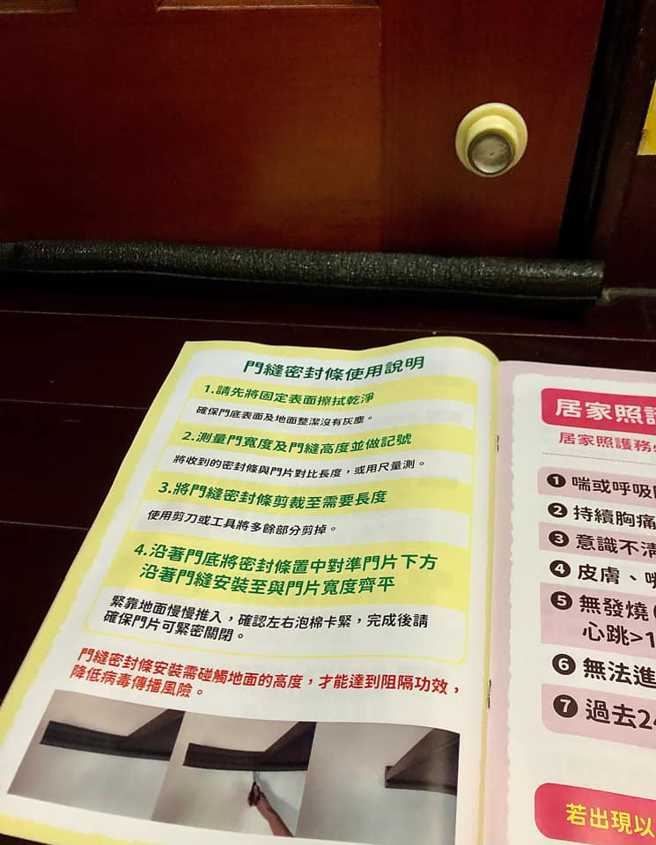 門縫密封條使用說明
1.請先將固定表面擦拭乾淨
確保門底表面及地面整潔沒有灰塵。
2.測量門寬度及門縫高度並做記號
將收到的密封條與門片對比長度，或用尺量測。
3.將門縫密封條剪裁至需要長度
使用剪刀或工具將多餘部分剪掉。
4.沿著門底將密封條置中對準門片下方
沿著門縫安裝至與門片寬度齊平
緊靠地面慢慢推入，確認左右泡棉卡緊，完成後請
確保門片可緊密關閉。
門縫密封條安裝需碰觸地面的高度，才能達到阻隔功效，
降低病毒傳播風險。
居家照
居家照護務
❶ 喘或呼吸
❷ 持續胸痛
❸ 意識不清
❹ 皮膚、
❺ 無發燒
心跳>1
❻ 無法進
❼ 過去24
若出現以